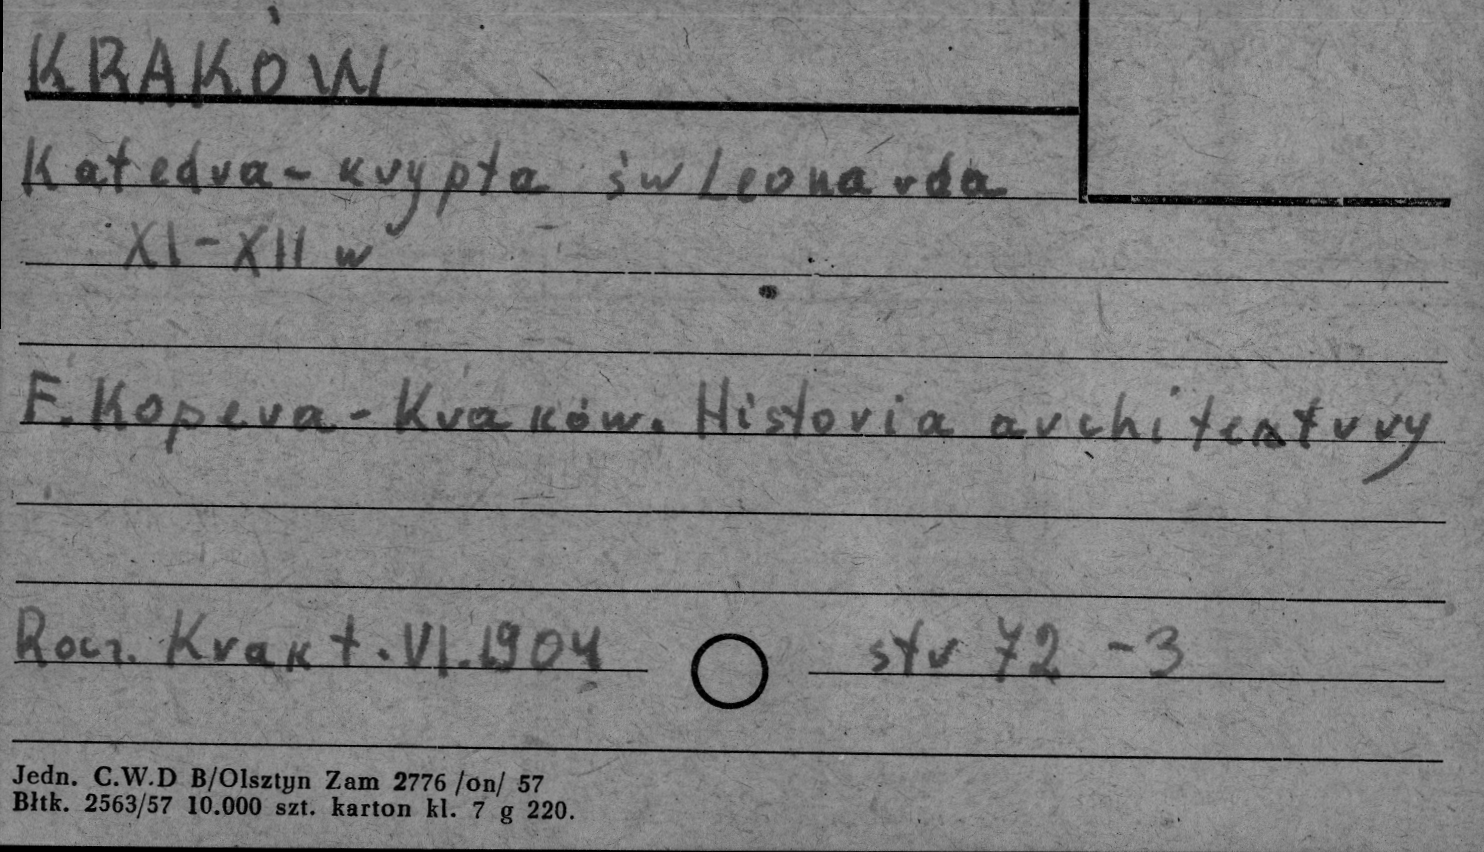 KRAKÓW
Katedra - krypta św Leonarda
XI - XII w
F. Kopera - Kraków. Historia architektury
Rocz. Krak t. VI. 1904 str 72 - 3
Jedn. C.W.D B/Olsztyn Zam 2776 /on/ 57
Błtk. 2563/57 10.000 szt. karton kl. 7 g 220.